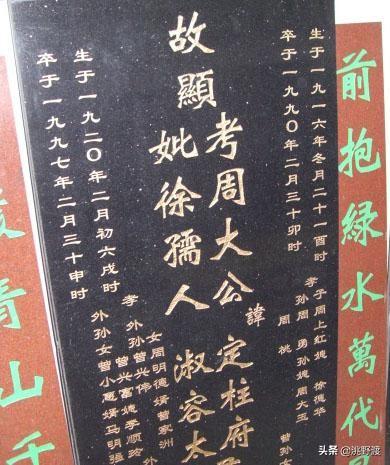 前抱綠水萬代
生于一九一六年冬月二十一酉时
卒于一九九〇年二月三十卯时
孝子周上紅媳徐德华
孙周勇孙媳周大玉
周桃
曾孙
故顯
考周大公諱定柱府
妣徐孺人淑容太
孝女周明德婿曾家洲
外孙曾兴伟
外孙曾兴富媳李顺
外孙女曾小惠婿马明
生于一九二〇年二月初六戌时
卒于一九九七年二月三十申时
青山千
头条 @洮野渡